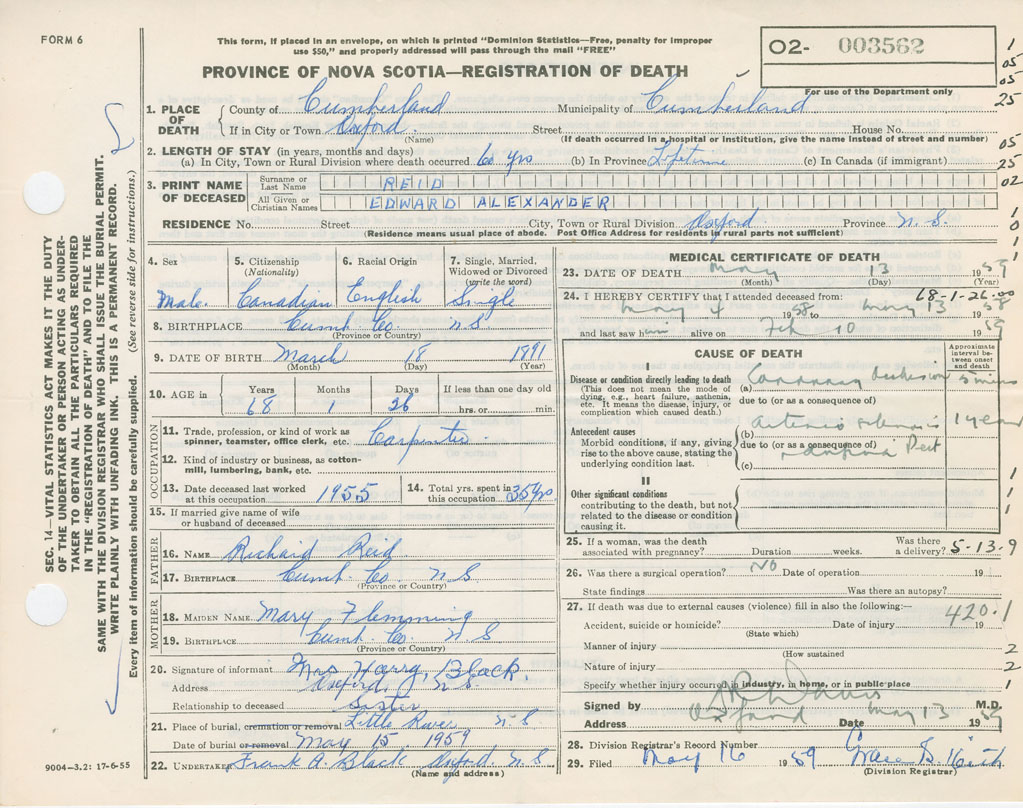 FORM 6
This form, if placed in an envelope, on which is printed "Dominion Statistics—Free, penalty for improper
use $50," and properly addressed will pass through the mail "FREE"
PROVINCE OF NOVA SCOTIA—REGISTRATION OF DEATH
O2- 003562
For use of the Department only
1
05
05
25
05
25
02
1
0
1
1. PLACE OF DEATH
County of Cumberland Municipality of Cumberland
If in City or Town Oxford Street House No.
(Name) (If death occurred in a hospital or institution, give the name instead of street and number)
2. LENGTH OF STAY (in years, months and days)
(a) In City, Town or Rural Division where death occurred 60 yrs (b) In Province Lifetime (c) In Canada (if immigrant)
3. PRINT NAME OF DECEASED
Surname or Last Name REID
All Given or Christian Names EDWARD ALEXANDER
RESIDENCE No. Street City, Town or Rural Division Oxford Province N.S.
(Residence means usual place of abode. Post Office Address for residents in rural parts not sufficient)
4. Sex
Male
5. Citizenship
(Nationality)
Canadian
6. Racial Origin
English
7. Single, Married,
Widowed or Divorced
(write the word)
Single
8. BIRTHPLACE Cumb Co. N S
(Province or Country)
9. DATE OF BIRTH March 18 1891
(Month) (Day) (Year)
10. AGE in
Years Months Days If less than one day old
68 1 26 hrs. or min.
OCCUPATION
11. Trade, profession, or kind of work as
spinner, teamster, office clerk, etc. Carpenter
12. Kind of industry or business, as cotton-
mill, lumbering, bank, etc.
13. Date deceased last worked
at this occupation 1955
14. Total yrs. spent in
this occupation 35 yrs
15. If married give name of wife
or husband of deceased
FATHER
16. NAME Richard Reid
17. BIRTHPLACE Cumb. Co. N S
(Province or Country)
MOTHER
18. MAIDEN NAME Mary Flemming
19. BIRTHPLACE Cumb. Co. N S
(Province or Country)
20. Signature of informant Mrs Harry Black
Address Oxford, N S
Relationship to deceased Sister
21. Place of burial, cremation or removal Little River N S
Date of burial or removal May 15, 1959
22. UNDERTAKER Frank A. Black Oxford. N S
(Name and address)
MEDICAL CERTIFICATE OF DEATH
23. DATE OF DEATH May 13 1959
(Month) (Day) (Year)
68-1-26-00
24. I HEREBY CERTIFY that I attended deceased from:
May 4 1958 to May 13 1958
and last saw him alive on Feb 10 1959
CAUSE OF DEATH
Approximate
interval be-
tween onset
and death
I
Disease or condition directly leading to death
(This does not mean the mode of
dying, e.g., heart failure, asthenia,
etc. It means the disease, injury, or
complication which caused death.)
(a) Coronary Occlusion 5 mins
due to (or as a consequence of)
Antecedent causes
Morbid conditions, if any, giving
rise to the above cause, stating the
underlying condition last.
(b) 1 year
due to (or as a consequence of)
(c)
II
Other significant conditions
contributing to the death, but not
related to the disease or condition
causing it.
1
1
1
25. If a woman, was the death
associated with pregnancy? Duration weeks.
Was there
a delivery? 5-13-9
26. Was there a surgical operation? NO Date of operation 19
State findings Was there an autopsy?
27. If death was due to external causes (violence) fill in also the following:—
420.1
Accident, suicide or homicide? Date of injury 19
(State which)
Manner of injury 2
(How sustained
Nature of injury 2
Specify whether injury occurred in industry, in home, or in public place 1
Signed by M.D.
Address Oxford Date May 13 1959
28. Division Registrar's Record Number
29. Filed May 16 1959
(Division Registrar)
SEC. 14—VITAL STATISTICS ACT MAKES IT THE DUTY
OF THE UNDERTAKER OR PERSON ACTING AS UNDER-
TAKER TO OBTAIN ALL THE PARTICULARS REQUIRED
IN THE "REGISTRATION OF DEATH" AND TO FILE THE
SAME WITH THE DIVISION REGISTRAR WHO SHALL ISSUE THE BURIAL PERMIT.
WRITE PLAINLY WITH UNFADING INK. THIS IS A PERMANENT RECORD.
Every item of information should be carefully supplied. (See reverse side for instructions.)
9004—3.2: 17-6-55